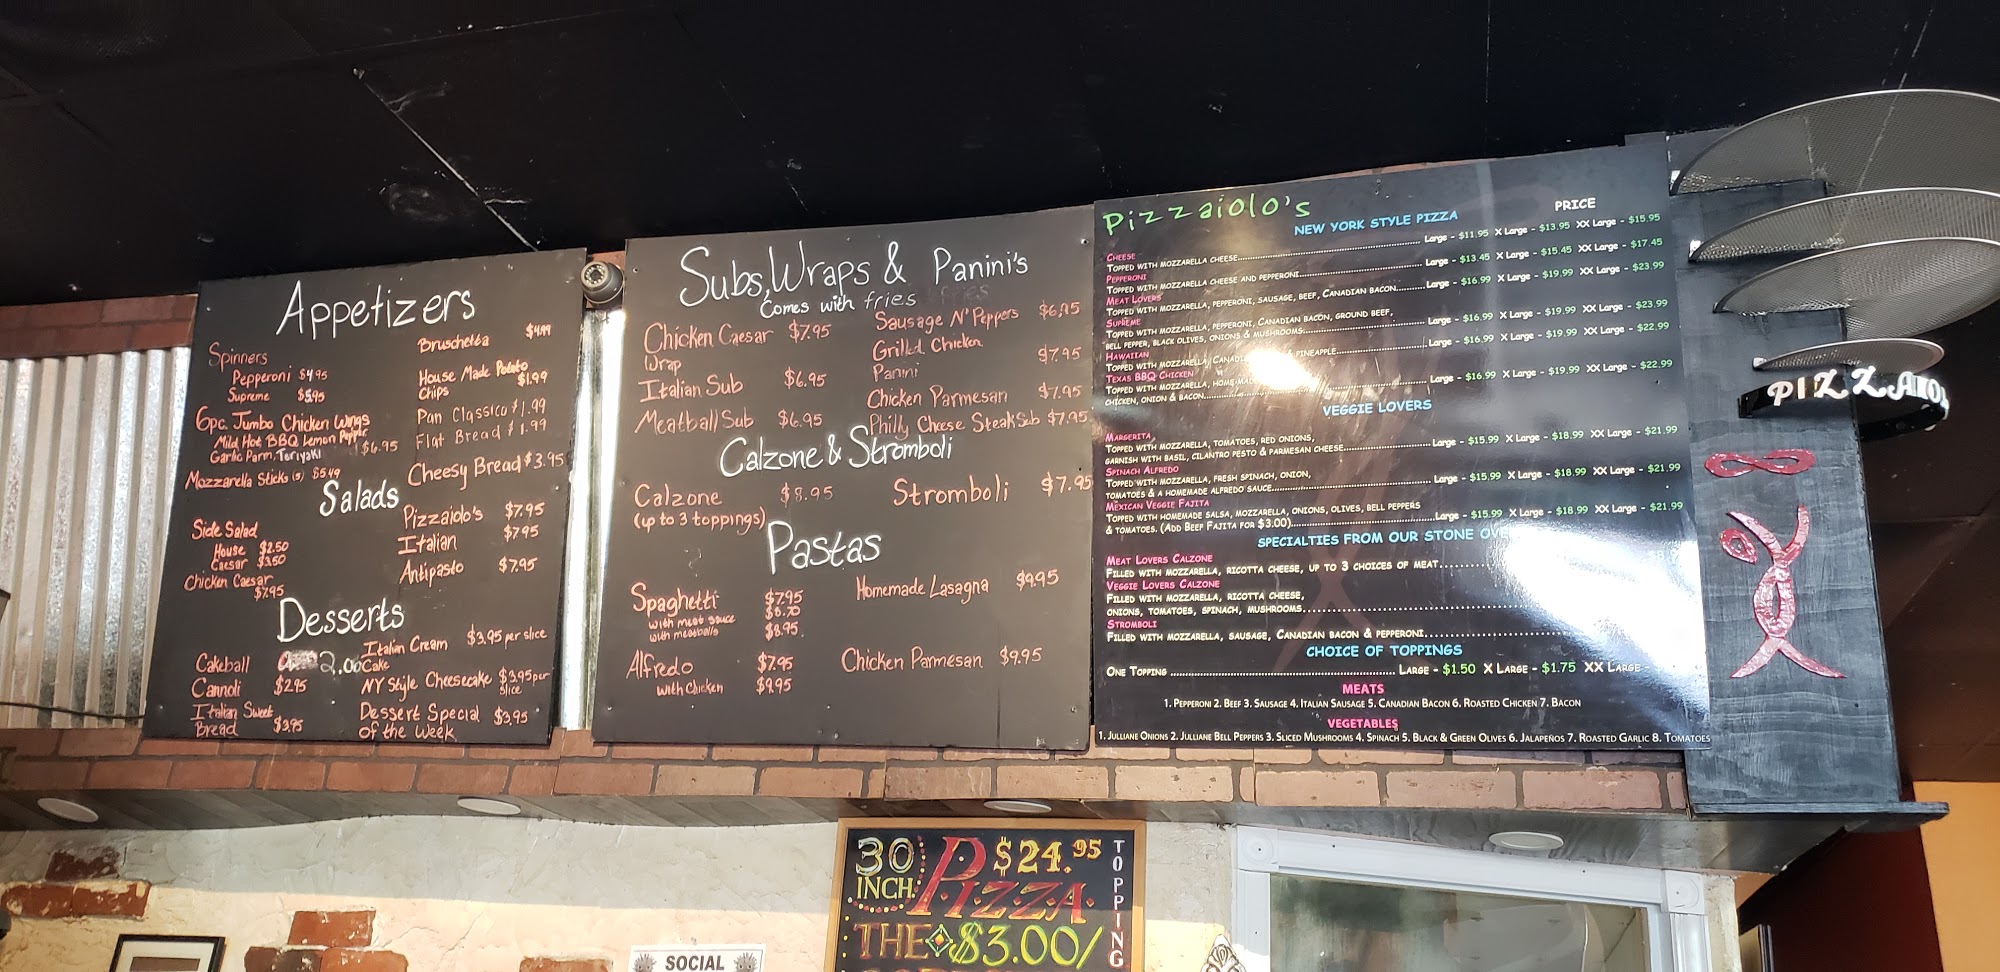 Appetizers
Spinners
Pepperoni $4.95
Supreme $5.95
6pc. Jumbo Chicken Wings
Mild Hot BBQ Lemon Pepper
Garlic Parm. Teriyaki $6.95
Mozzarella Sticks (5) $5.49
Bruschetta $4.99
House Made Potato
Chips $1.99
Pan Classico $1.99
Flat Bread $1.99
Cheesy Bread $3.95
Salads
Side Salad
House $2.50
Caesar $3.50
Chicken Caesar
$7.95
Pizzaiolo's $7.95
Italian $7.95
Antipasto $7.95
Desserts
Cakeball 2.00
Cannoli $2.95
Italian Sweet
Bread $3.95
Italian Cream
Cake $3.95 per slice
NY Style Cheesecake $3.95 per
slice
Dessert Special
of the Week $3.95
Subs, Wraps & Panini's
Comes with fries
Chicken Caesar $7.95
Wrap
Italian Sub $6.95
Meatball Sub $6.95
Sausage N' Peppers $6.95
Grilled Chicken
Panini $7.95
Chicken Parmesan $7.95
Philly Cheese Steak Sub $7.95
Calzone & Stromboli
Calzone $8.95
(up to 3 toppings)
Stromboli $7.95
Pastas
Spaghetti $7.95
with meat sauce
with meatballs $8.95
Alfredo $7.95
with Chicken $9.95
Homemade Lasagna $9.95
Chicken Parmesan $9.95
Pizzaiolo's
NEW YORK STYLE PIZZA PRICE
CHEESE
TOPPED WITH MOZZARELLA CHEESE Large - $11.95 X Large - $13.95 XX Large - $15.95
PEPPERONI
TOPPED WITH MOZZARELLA CHEESE AND PEPPERONI Large - $13.45 X Large - $15.45 XX Large - $17.45
MEAT LOVERS
TOPPED WITH MOZZARELLA, PEPPERONI, SAUSAGE, BEEF, CANADIAN BACON Large - $16.99 X Large - $19.99 XX Large - $23.99
SUPREME
TOPPED WITH MOZZARELLA, PEPPERONI, CANADIAN BACON, GROUND BEEF,
BELL PEPPER, BLACK OLIVES, ONIONS & MUSHROOMS Large - $16.99 X Large - $19.99 XX Large - $23.99
HAWAIIAN
TOPPED WITH MOZZARELLA, PINEAPPLE Large - $16.99 X Large - $19.99 XX Large - $22.99
TEXAS BBQ CHICKEN
TOPPED WITH MOZZARELLA, HOME-MADE
CHICKEN, ONION & BACON Large - $16.99 X Large - $19.99 XX Large - $22.99
VEGGIE LOVERS
MARGERITA
TOPPED WITH MOZZARELLA, TOMATOES, RED ONIONS,
GARNISH WITH BASIL, CILANTRO PESTO & PARMESAN CHEESE Large - $15.99 X Large - $18.99 XX Large - $21.99
SPINACH ALFREDO
TOPPED WITH MOZZARELLA, FRESH SPINACH, ONION,
TOMATOES & A HOMEMADE ALFREDO SAUCE Large - $15.99 X Large - $18.99 XX Large - $21.99
MEXICAN VEGGIE FAJITA
TOPPED WITH HOMEMADE SALSA, MOZZARELLA, ONIONS, OLIVES, BELL PEPPERS
& TOMATOES. (ADD BEEF FAJITA FOR $3.00) Large - $15.99 X Large - $18.99 XX Large - $21.99
SPECIALTIES FROM OUR STONE
MEAT LOVERS CALZONE
FILLED WITH MOZZARELLA, RICOTTA CHEESE, UP TO 3 CHOICES OF MEAT
VEGGIE LOVERS CALZONE
FILLED WITH MOZZARELLA, RICOTTA CHEESE,
ONIONS, TOMATOES, SPINACH, MUSHROOMS
STROMBOLI
FILLED WITH MOZZARELLA, SAUSAGE, CANADIAN BACON & PEPPERONI
CHOICE OF TOPPINGS
ONE TOPPING LARGE - $1.50 X LARGE - $1.75 XX LARGE -
MEATS
1. PEPPERONI 2. BEEF 3. SAUSAGE 4. ITALIAN SAUSAGE 5. CANADIAN BACON 6. ROASTED CHICKEN 7. BACON
VEGETABLES
1. JULLIANE ONIONS 2. JULLIANE BELL PEPPERS 3. SLICED MUSHROOMS 4. SPINACH 5. BLACK & GREEN OLIVES 6. JALAPEÑOS 7. ROASTED GARLIC 8. TOMATOES
30 INCH PIZZA $24.95
THE $3.00/
TOPPING
SOCIAL